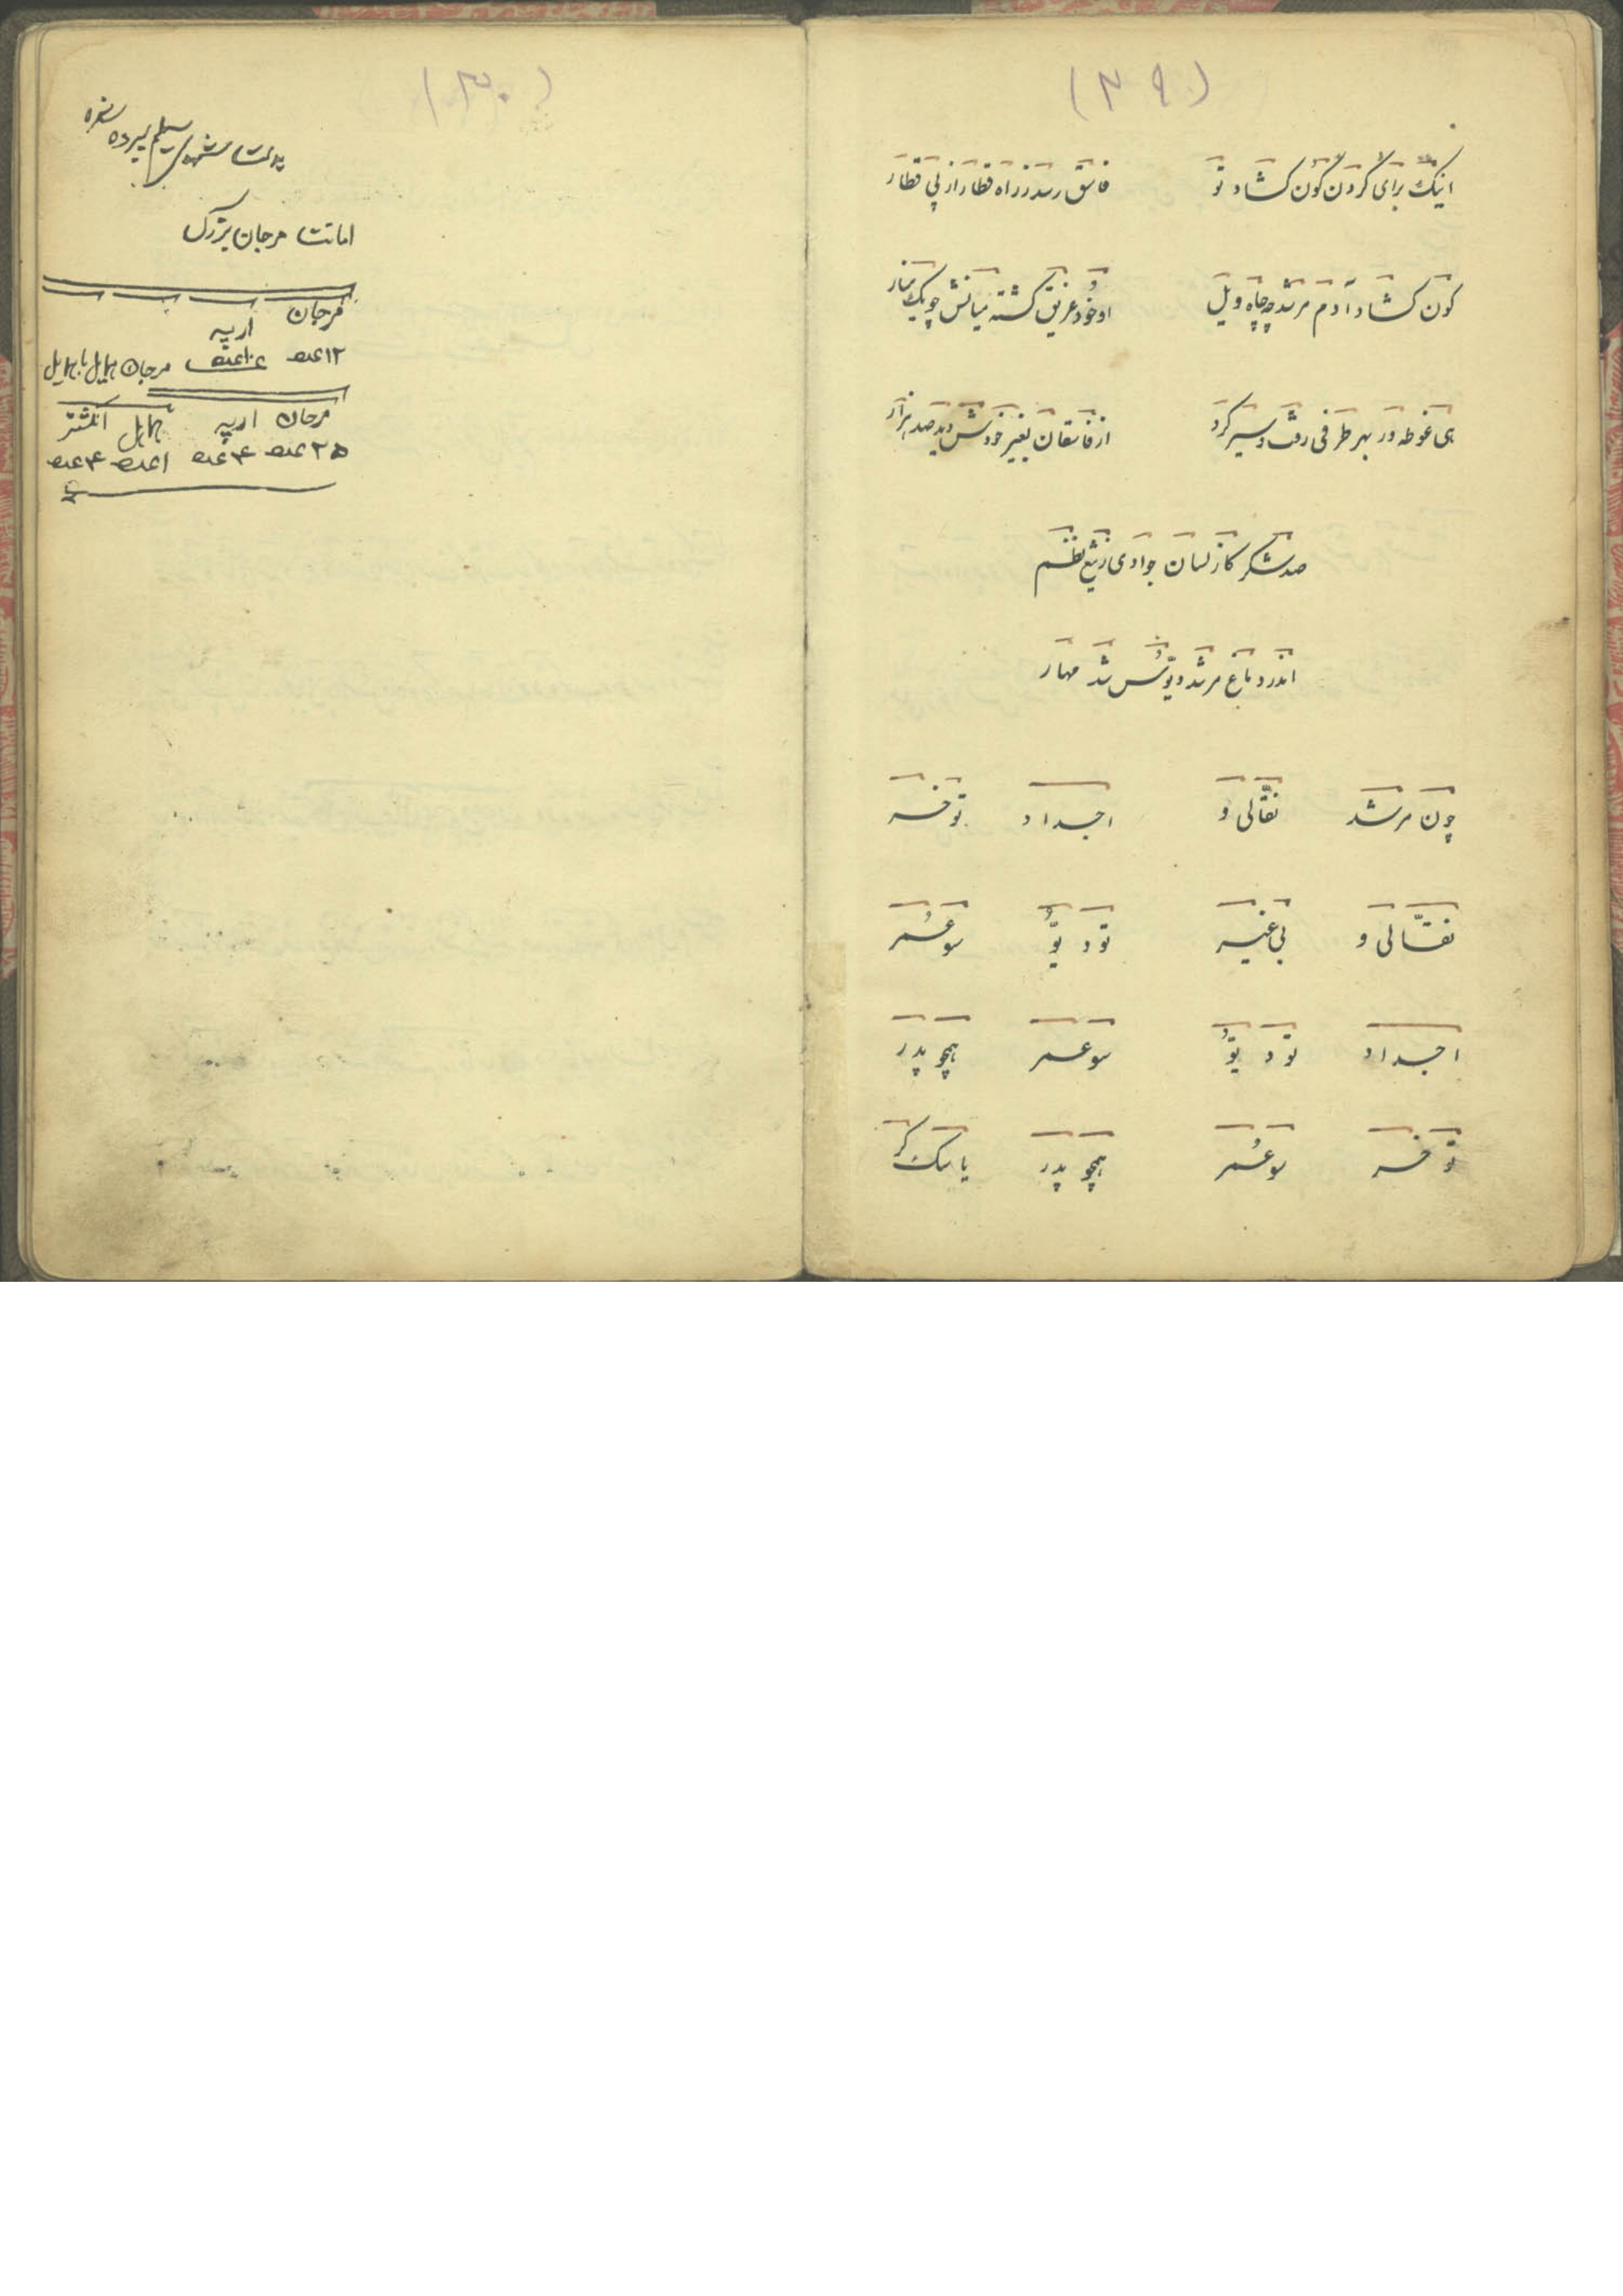 (۲۹)
اینک برای کردن کون کشاد تو فاسق رسد ز راه قطار از پی قطار
کون کشاد آدم مرشد چه چاه ویل او خود غریق گشته میانش چو یک
هی غوطه ور بهر طرفی رفت و سیر کرد از فاسقان بغیر خودش دید صد هزار
صد شکر کز لسان جوادی ز تیغ نظم
اندر دماغ مرشد دیّوُث شد مهار
چون مرشد نقّالی و اجداد تو خر
نقّالی و بی غیر تو دیّوُ سوعمر
اجداد تو دیّوُ سوعمر همچو پدر
تو خر سوعمر همچو پدر یا سک کر
(۳۰)
بدست مشهدی سپرده شده
امانت مرجان بزرگ
مرجان ارپه
۱۲ عدد ۱۰ عدد مرجان هایل با هایل
مرجان ارپه هایل انگشتر
۲۵ عدد ۴ عدد ۱ عدد ۴ عدد